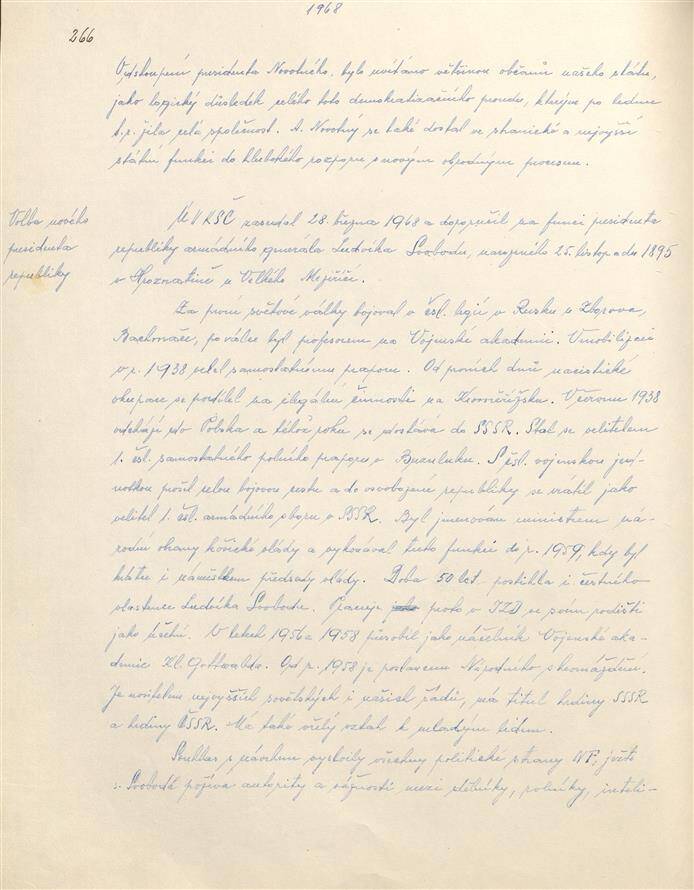 1968
266
Odstoupení presidenta Novotného, bylo uvítáno většinou občanů našeho státu,
jako logický důsledek celého toho demokratizačního proudu, kterým po lednu
t.r. žila celá společnost. A. Novotný se také dostal ve stranické a nejvyšší
státní funkci do hlubokého rozporu s novým obrodným procesem.
Volba nového
presidenta
republiky
ÚV KSČ zasedal 28. března 1968 a doporučil za funkci presidenta
republiky armádního generála Ludvíka Svobodu, narozeného 25. listopadu 1895
v Hroznatíně u Velkého Meziříčí.
Za první světové války bojoval v čsl. legii v Rusku u Zborova,
Bachmače, po válce byl profesorem na Vojenské akademii. V mobilizaci
v r. 1938 velel samostatnému praporu. Od prvních dnů nacistické
okupace se podílel na ilegální činnosti na Kroměřížsku. V červnu 1938
odchází do Polska a téhož roku se dostává do SSSR. Stal se velitelem
1. čsl. samostatného polního praporu v Buzuluku. S čsl. vojenskou jed-
notkou prošel celou bojovou cestu a do osvobozené republiky se vrátil jako
velitel 1. čsl. armádního sboru v SSSR. Byl jmenován ministrem ná-
rodní obrany košické vlády a vykonával tuto funkci do r. 1959, kdy byl
krátce i náměstkem předsedy vlády. Doba 50 let postihla i čestného
vlastence Ludvíka Svobodu. Pracuje jako proto v JZD ve svém rodišti
jako účetní. V letech 1956 a 1958 působil jako náčelník Vojenské aka-
demie Kl. Gottwalda. Od r. 1958 je poslancem Národního shromáždění.
Je nositelem nejvyšších sovětských i našich řádů, má titul hrdiny SSSR
a hrdiny ČSSR. Má také vřelý vztah k mladým lidem.
Souhlas s návrhem vyslovily všechny politické strany NF, ježto
s. Svoboda požívá autority a vážnosti mezi dělníky, rolníky, inteli-